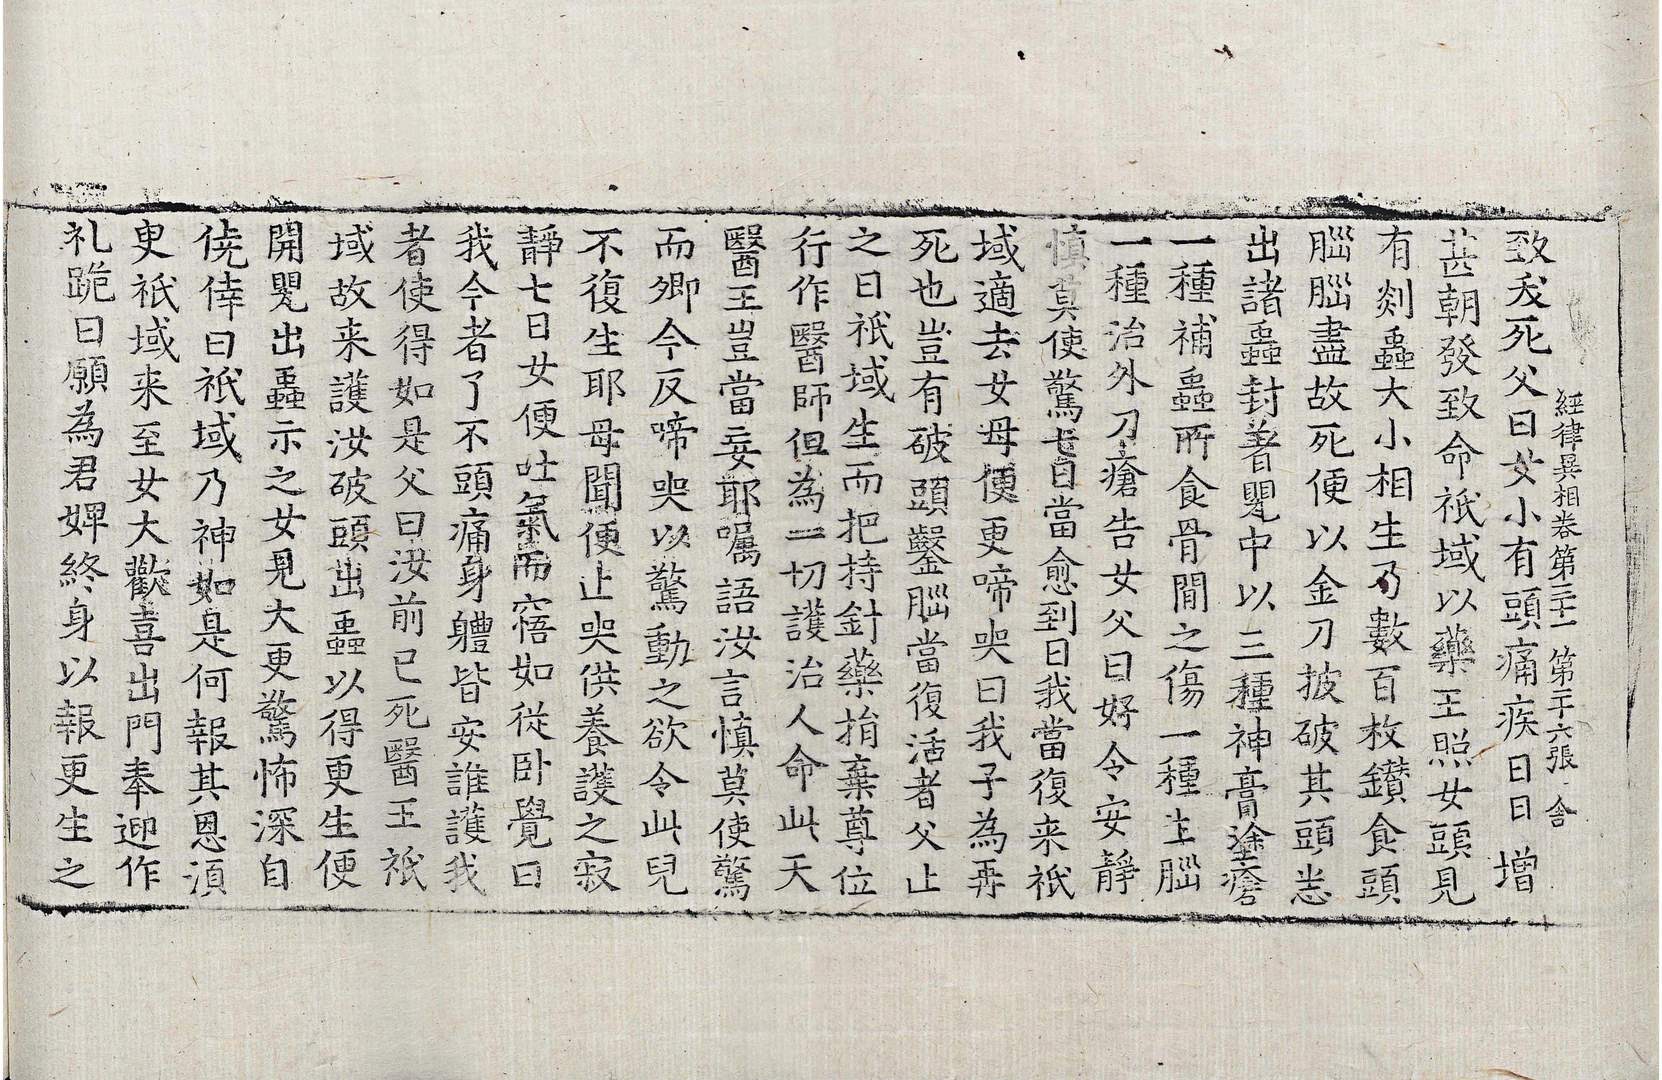 經律異相卷第三十一 第二十六張 舍
致死死父曰女小有頭痛疾日日增
甚朝發致命祇域以藥王照女頭見
有剡蟲大小相生乃數百枚鑚食頭
腦腦盡故死便以金刀披破其頭悉
出諸蟲封著甖中以三種神膏塗瘡
一種補蟲所食骨間之傷一種生腦
一種治外刀瘡告女父曰好令安靜
慎莫使驚十日當愈到日我當復来祇
域適去女母便更啼哭曰我子為再
死也豈有破頭鑿腦當復活者父止
之曰祇域生而把持針藥捐棄尊位
行作醫師但為一切護治人命此天
醫王豈當妄耶囑語汝言慎莫使驚
而卿今反啼哭以驚動之欲令此兒
不復生耶母聞便止哭供養護之寂
靜七日女便吐氣而寤如從卧覺曰
我今者了不頭痛身軆皆安誰護我
者使得如是父曰汝前已死醫王祇
域故来護汝破頭出蟲以得更生便
開甖出蟲示之女見大更驚怖深自
僥倖曰祇域乃神如是何報其恩須
臾祇域来至女大歡喜出門奉迎作
礼跪曰願為君婢終身以報更生之